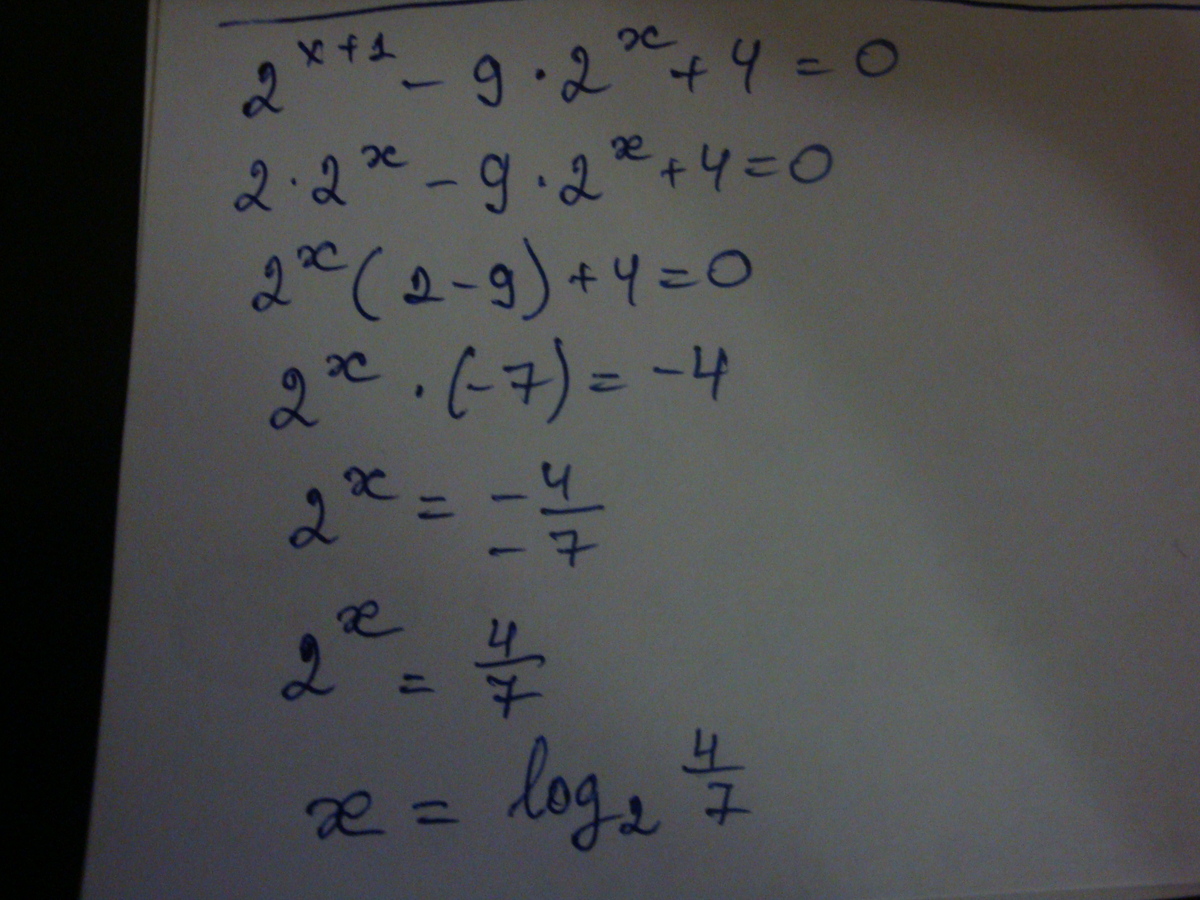 2^{x+1} - 9 · 2^x + 4 = 0
2 · 2^x - 9 · 2^x + 4 = 0
2^x (2 - 9) + 4 = 0
2^x · (-7) = -4
2^x = \frac{-4}{-7}
2^x = \frac{4}{7}
x = log_2 \frac{4}{7}